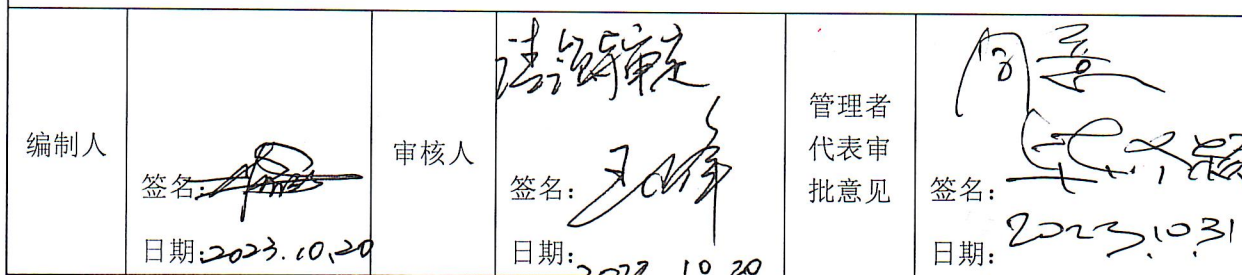 编制人
签名:
日期:2023.10.20
审核人
审定
签名:王峰
日期:
2023.10.20
管理者
代表审
批意见
同意
签名:
日期:2023.10.31